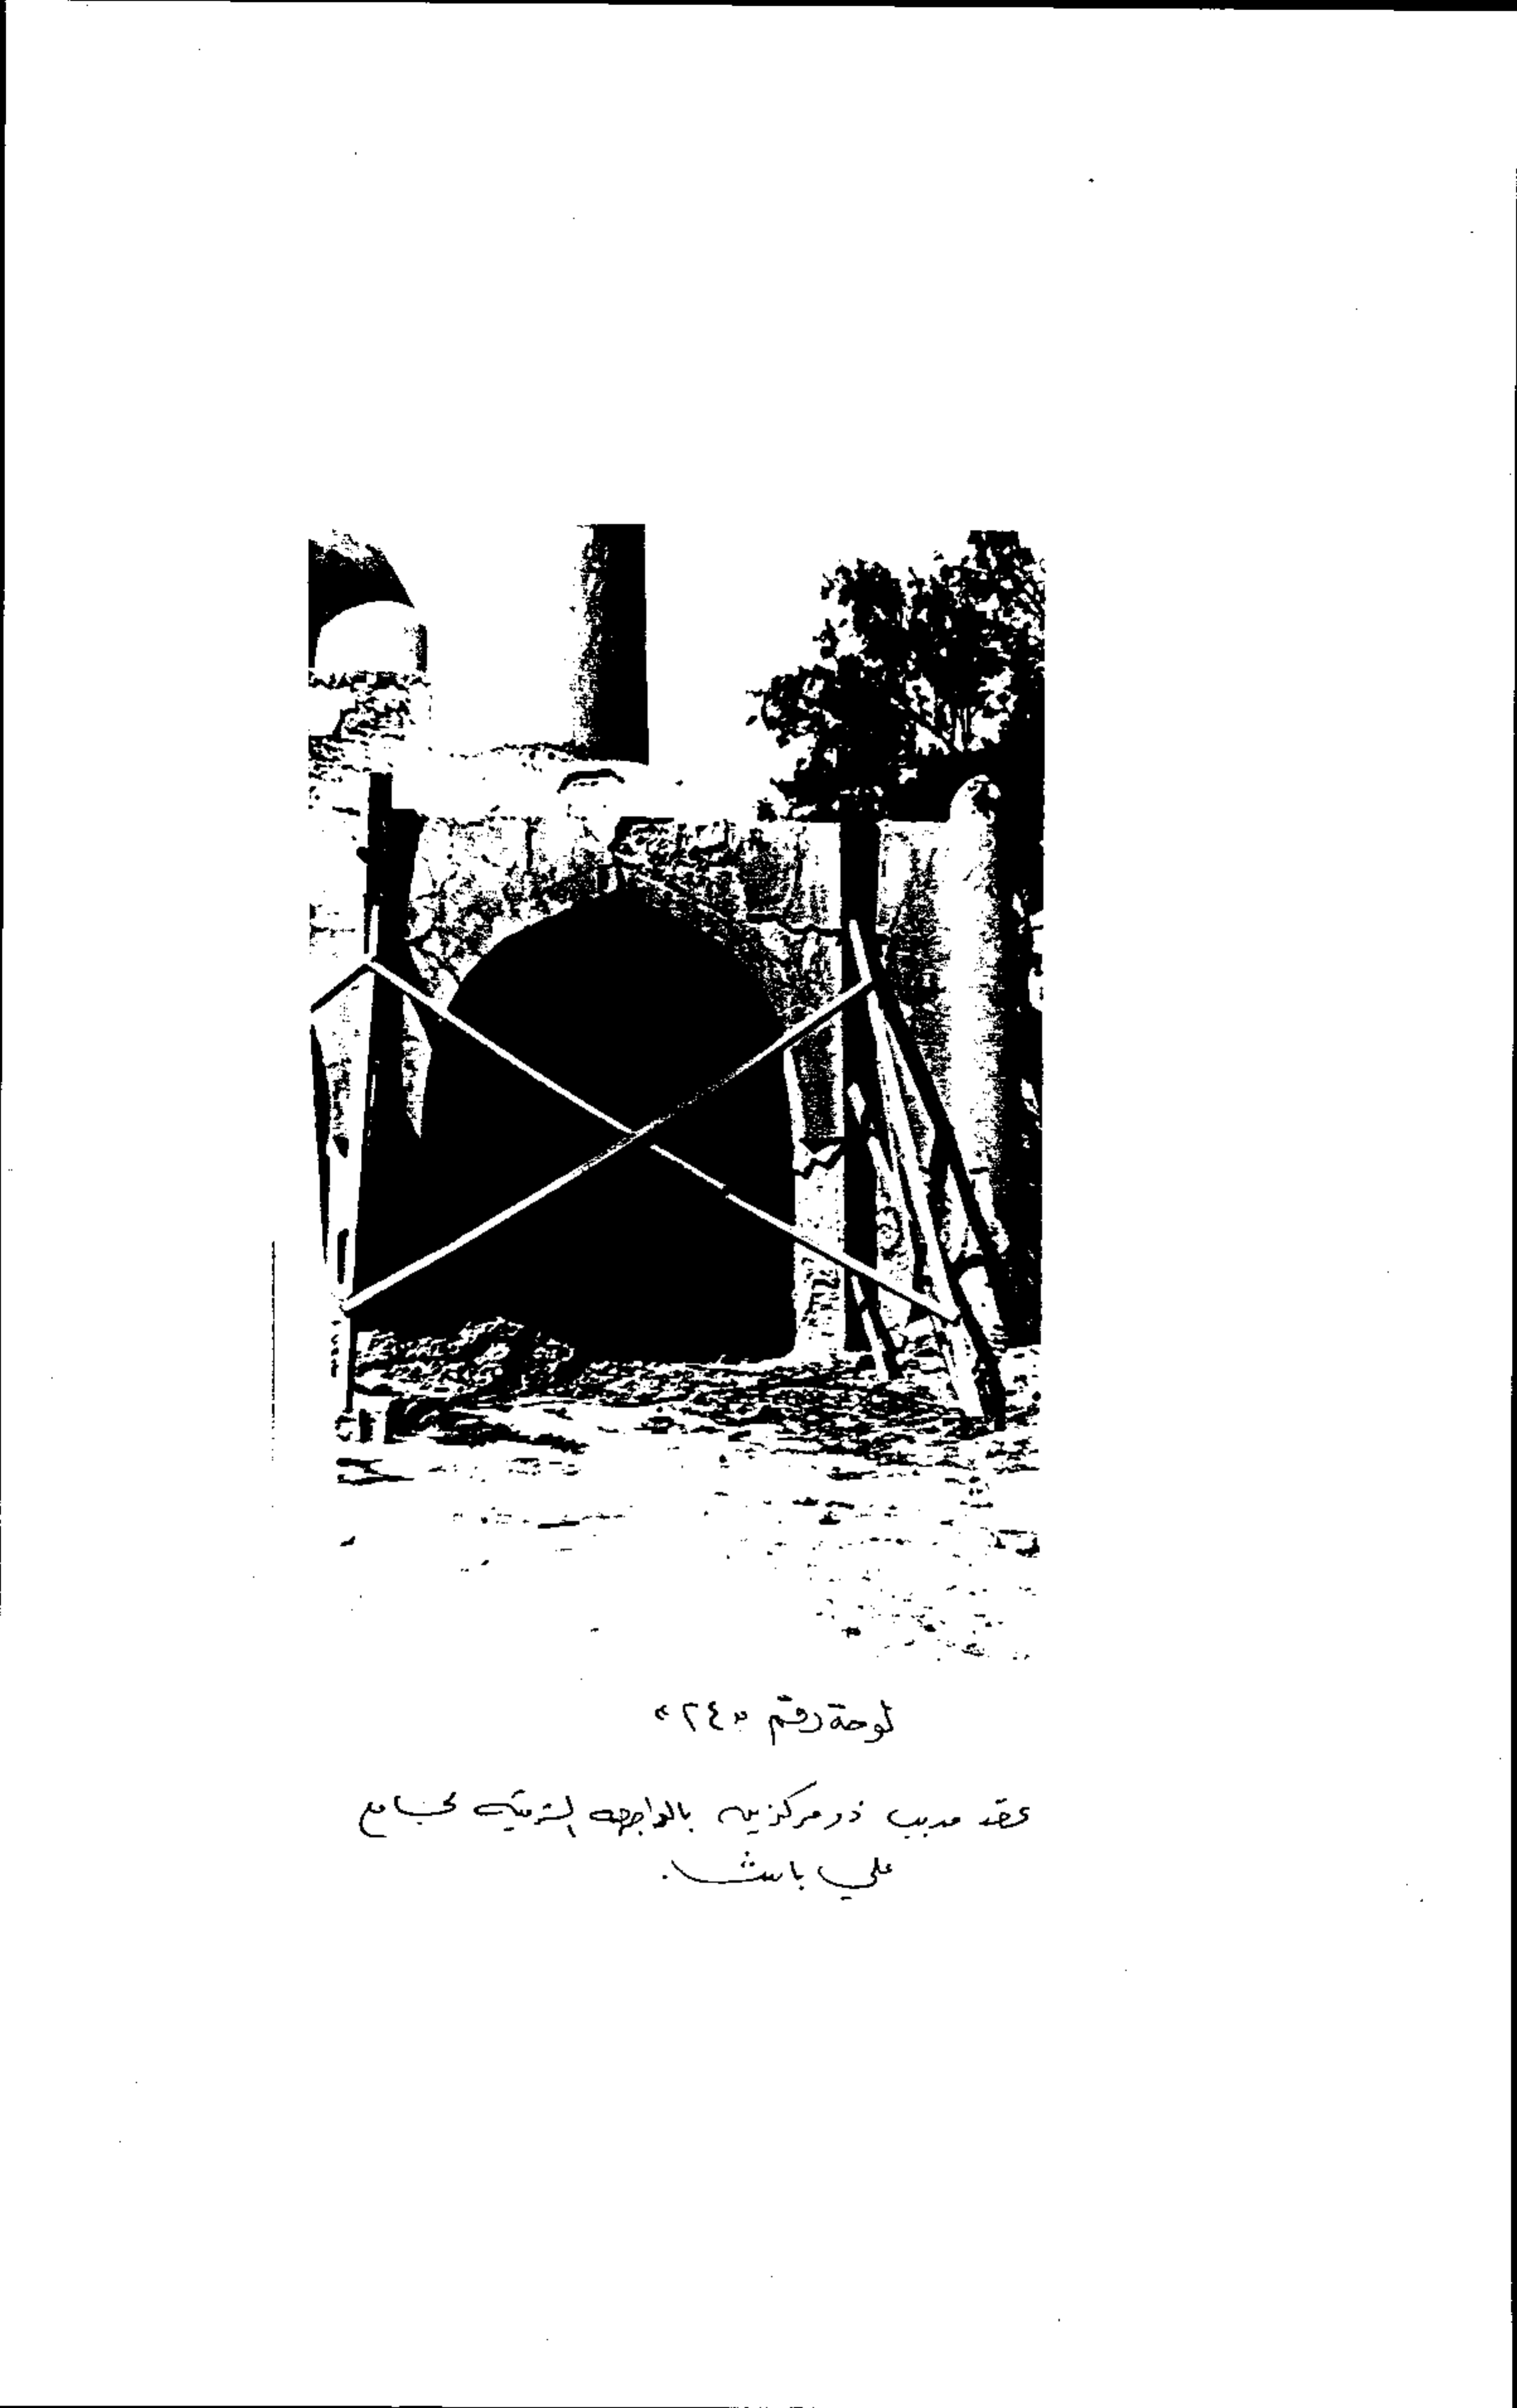 لوحة رقم «٢٤»
عقد مدبب ذو مركزين بالواجهه الشرقيه لجامع
علي باشا.